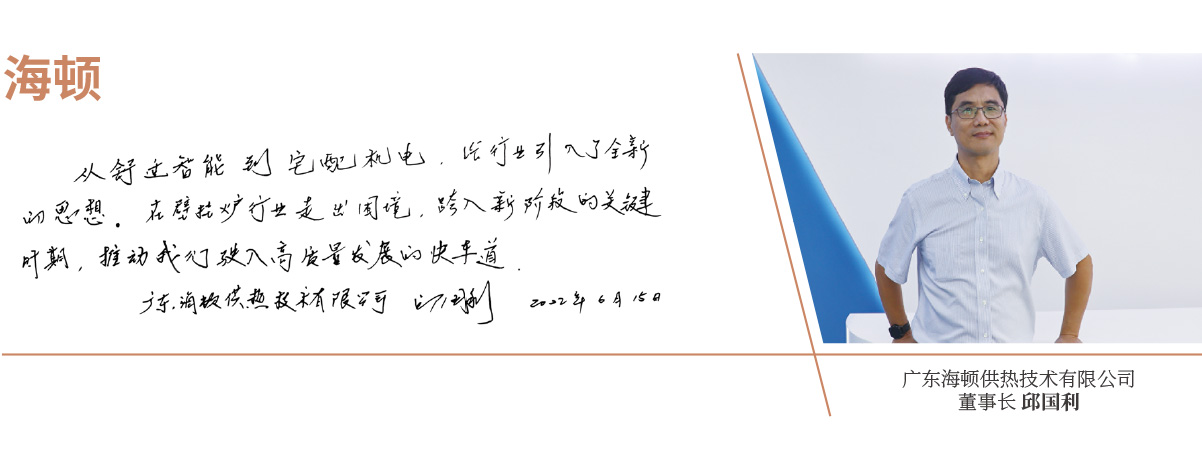 海顿
从舒适智能到宅配机电，给行业引入了全新
的思想。在壁挂炉行业走出困境，跨入新阶段的关键
时期，推动我们驶入高质量发展的快车道。
广东海顿供热技术有限公司 邱国利 2022年6月15日
广东海顿供热技术有限公司
董事长 邱国利